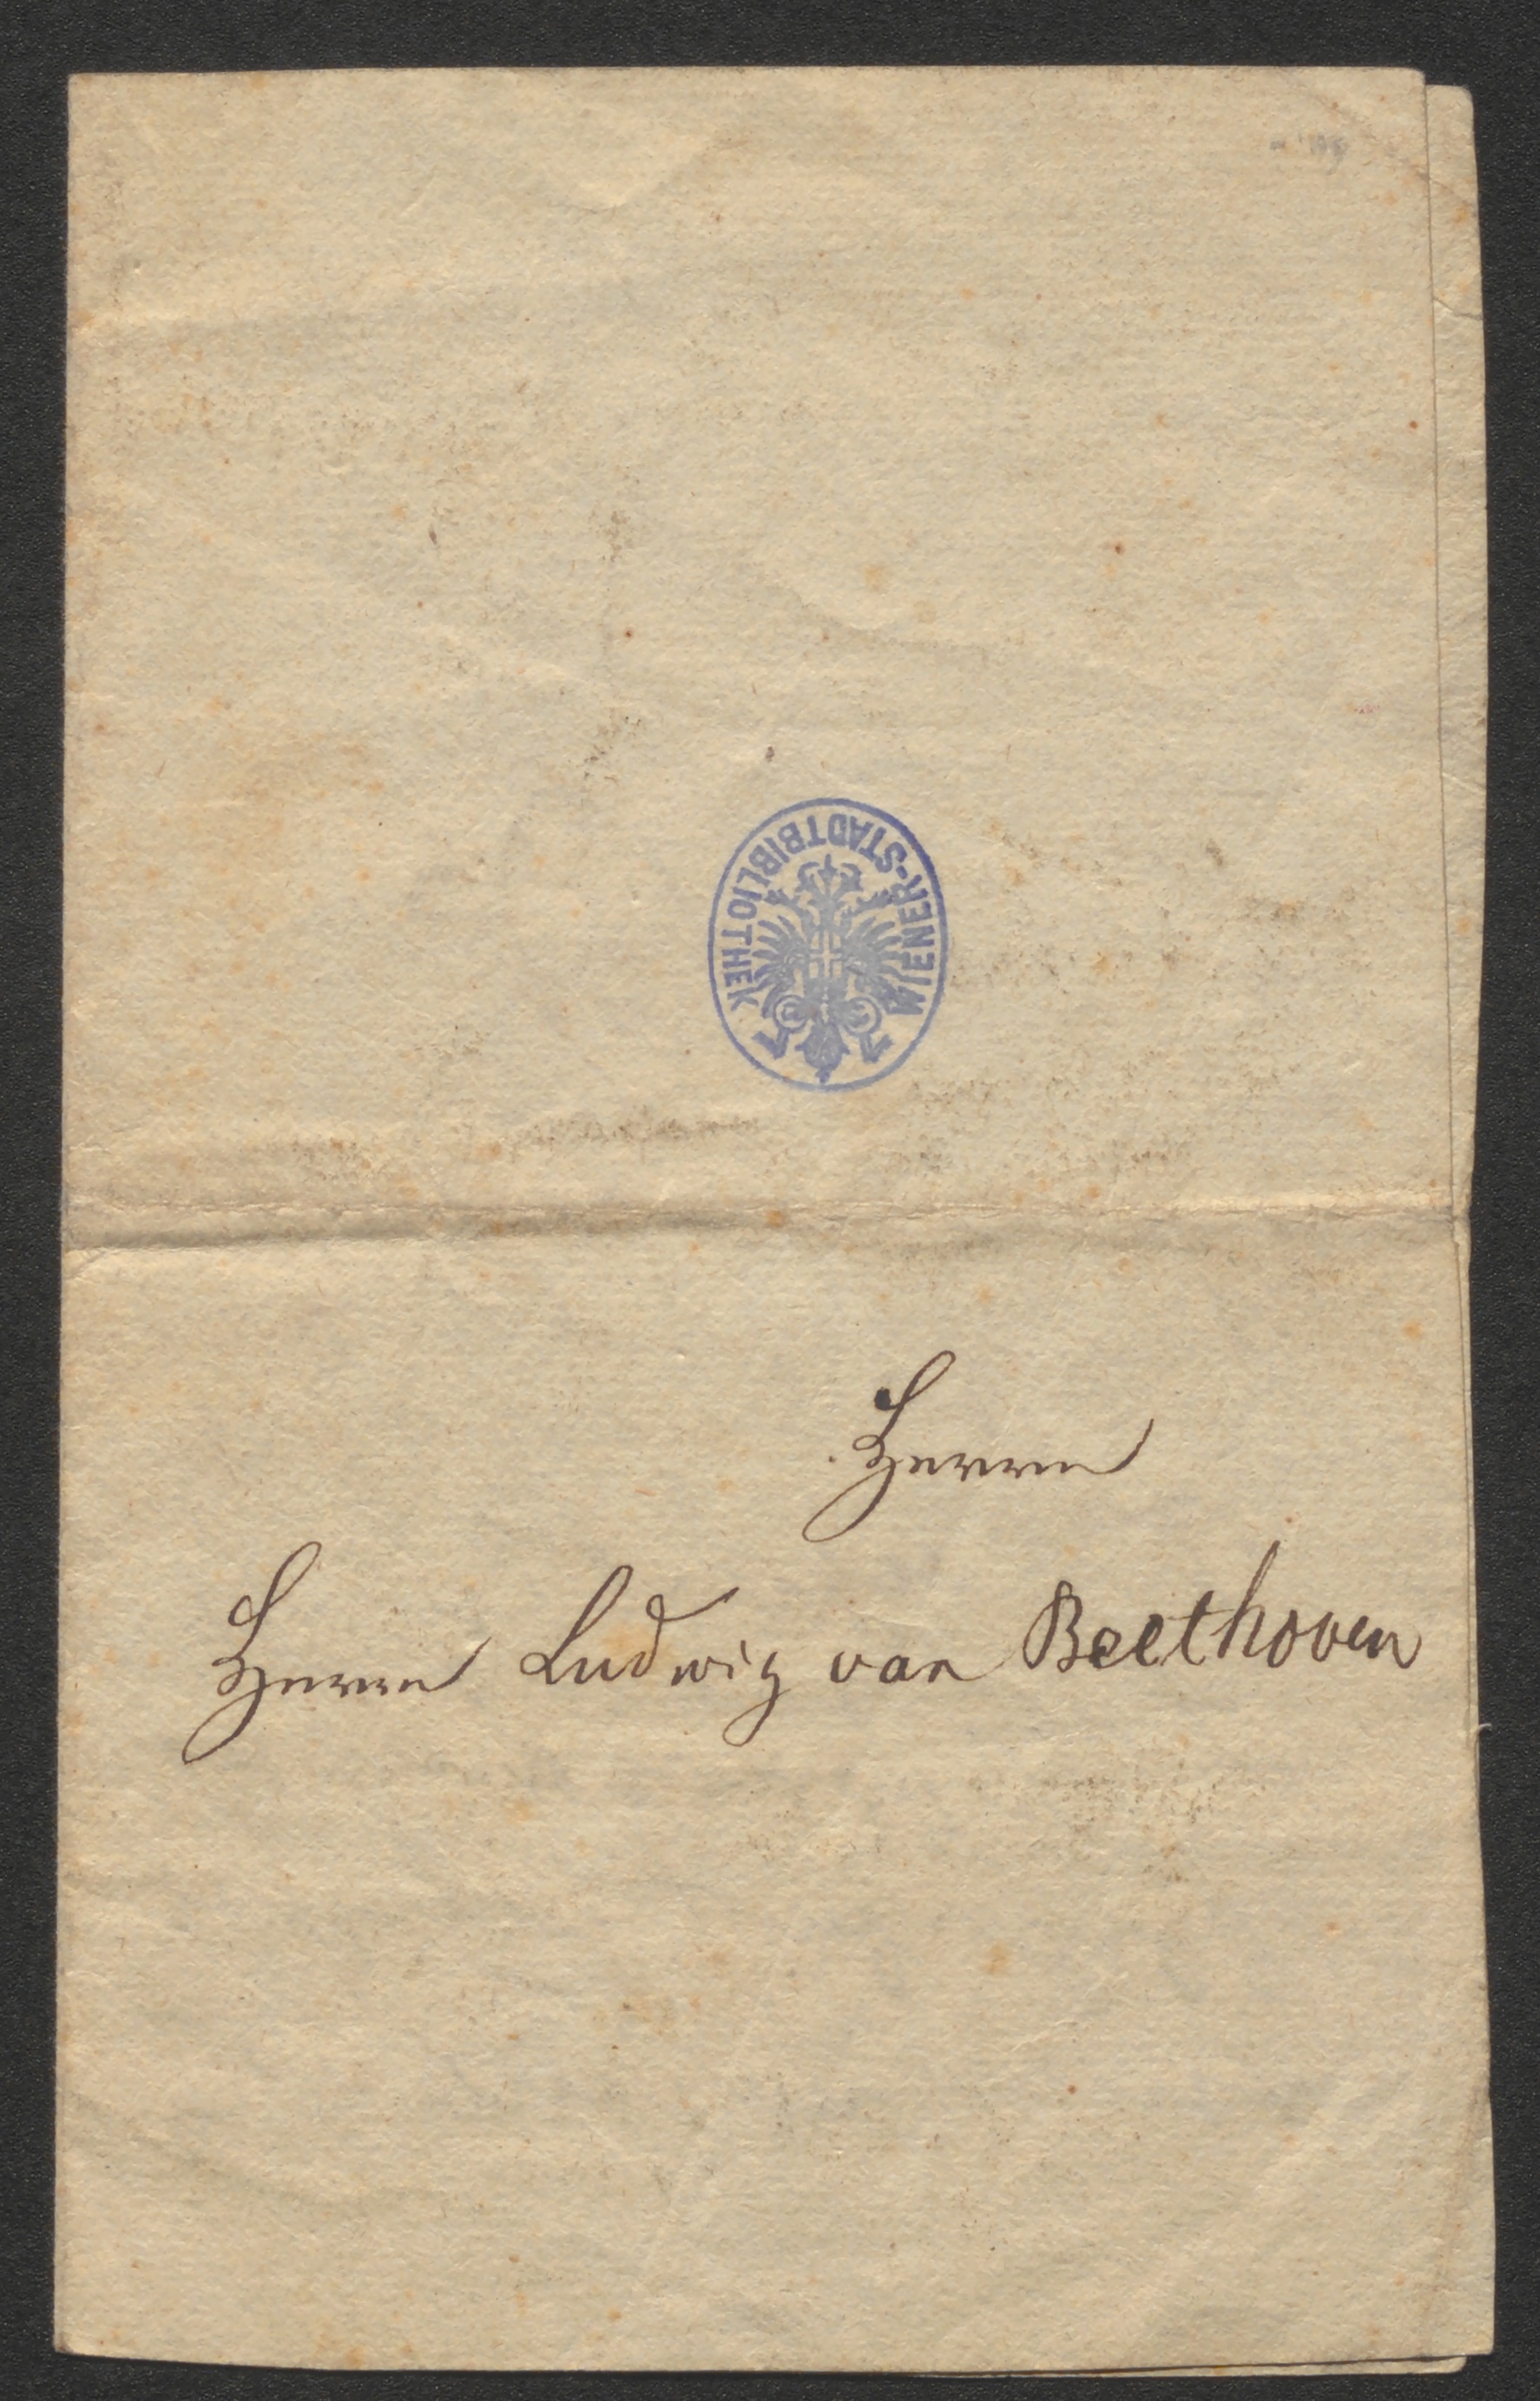 WIENER-STADTBIBLIOTHEK
Herrn
Herrn Ludwig van Beethoven